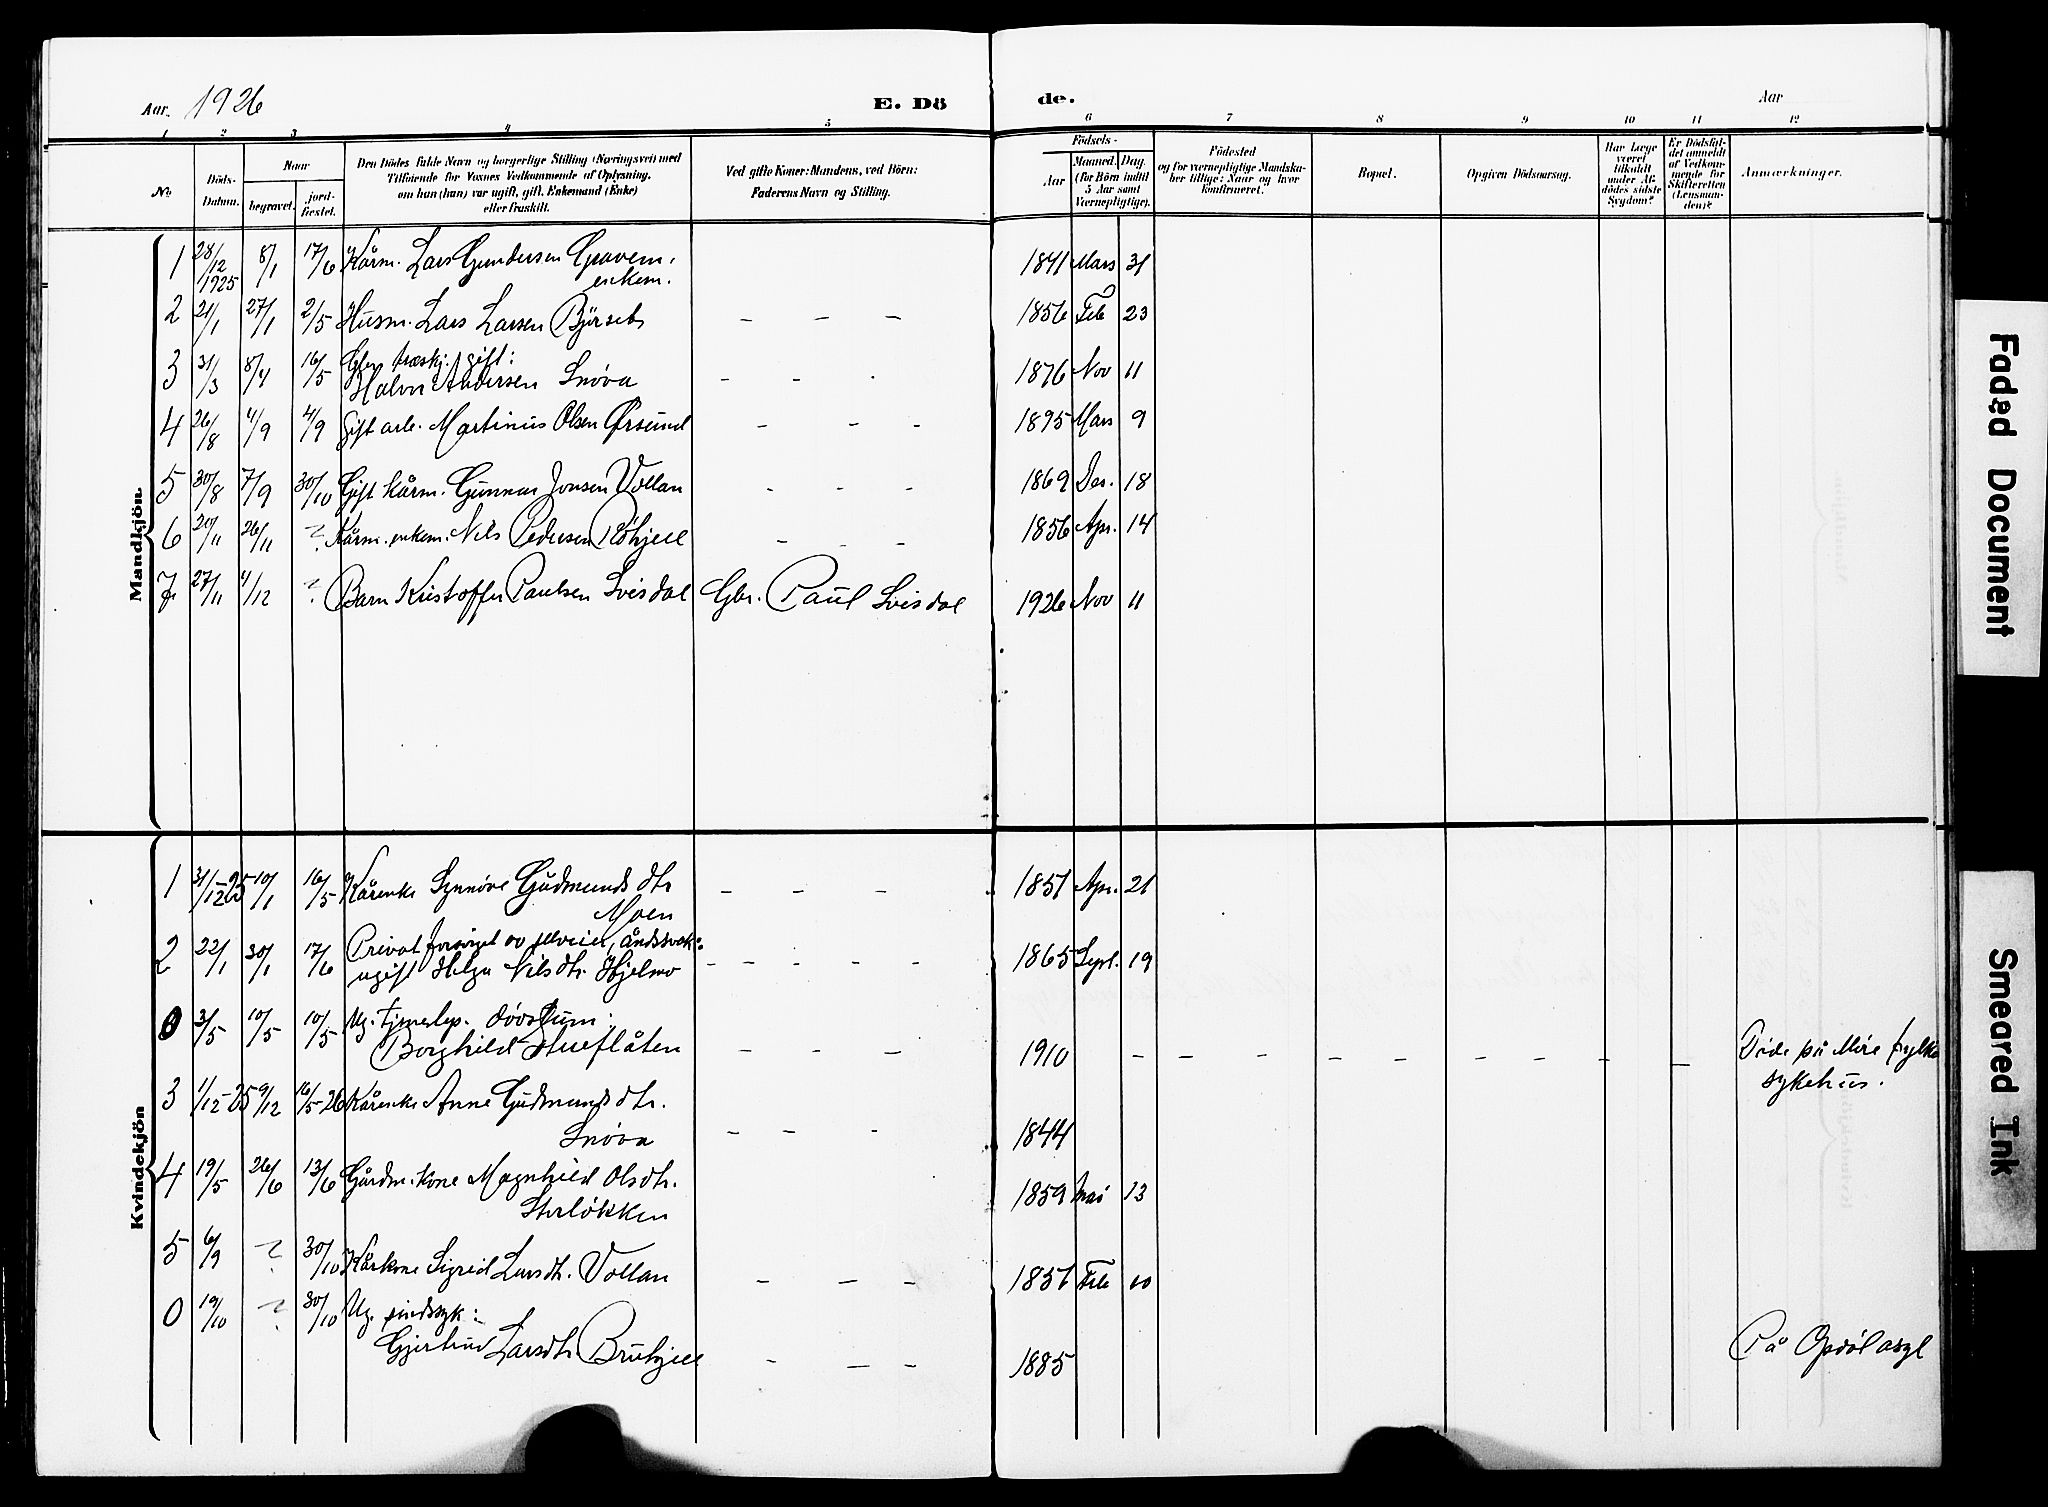 Aar. 1926
E. Dö
de.
Aar
1 2 3 4 5 6 7 8 9 10 11 12
No
Döds-Datum.
Naar
begravet.
jordfæstet.
Den Dödes fulde Navn og borgerlige Stilling (Næringsvei) med
Tilföiende for Voxnes Vedkommende af Oplysning,
om hun (han) var ugift, gift, Enkemand (Enke)
eller fraskilt.
Ved gifte Koner: Mandens, ved Börn:
Faderens Navn og Stilling.
Födsels-
Aar
Maaned. Dag.
(for Börn indtil
5 Aar samt
Værnepligtige).
Födested
og for værnepligtige Mandska-
ber tillige: Naar og hvor
Konfirmeret.
Bopæl.
Opgiven Dödsaarsag.
Har Læge
været
tilkaldt
under Af-
dödes sidste
Sygdom?
Er Dödsfal-
det anmeldt
af Vedkom-
mende for
Skifteretten
(Lensman-
den)?
Anmærkninger.
Mandkjön.
1 28/12 1925 8/1 17/6 Kårm. Lars Gundersen Gravem, 1841 Mars 31
enkem.
2 21/1 27/1 2/5 Husm. Lars Larsen Bjørset – – – 1856 Feb 23
3 31/3 8/4 16/5 Gbr. træskj. gift: – – . 1876 Nov 11
Halvor Andersen Snøva
4 26/8 4/9 4/9 Gift arb. Martinus Olsen Ørsund – – – 1895 Mars 9
5 30/8 7/9 30/10 Gift kårm. Gunnar Jonsen Vollan – – – 1869 Des. 18
6 20/11 26/11 ? Kårm. enkem. Nils Pedersen Røhjell – – – 1856 Apr. 14
7 27/11 4/12 ? Barn Kristoffer Paulsen Svisdal Gbr. Paul Svisdal 1926 Nov 11
Kvindekjön
1 31/12-25 10/1 16/5 Kårenke Synnöve Gudmundsdtr – – – 1851 Apr. 21
Moen
2 22/1 30/1 17/6 Privat forsörget av åndssvak: – – – – – 1865 Sept. 19
ugift Helga Nilsdtr. Hjelmo
0 3/5 10/5 10/5 Ug. døvstum:
Borghild Stueflåten – – – 1910 – – – – – – – – – Døde på Møre fylke
sykehus.
3 1/12-25 9/12 16/5-26 Kårenke Anne Gudmundsdtr.
Snøva – – – 1844
4 19/5 26/6 13/6 Gårdm. kone Magnhild Olsdtr. 1859 Mai 13
Storløkken
5 6/9 ? 30/10 Kårkone Sigrid Larsdtr. Vollan – – – 1851 Feb 10
0 19/10 ? 30/10 Ug. sindssyk:
Gjertrud Larsdtr. Bruhjell – – – 1885 På Opdöl asyl
Faded Document
Smeared Ink